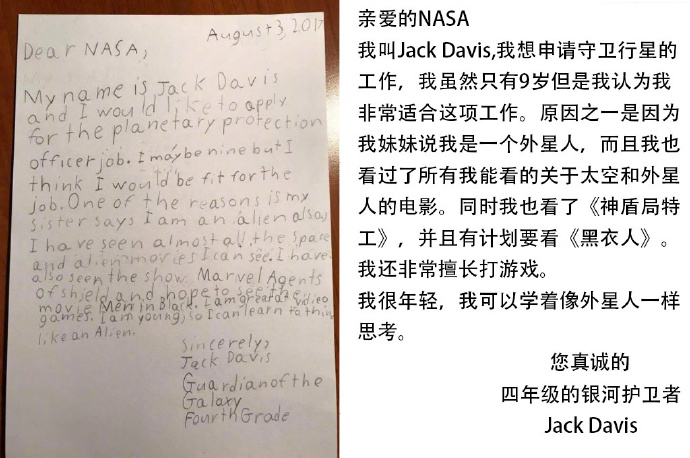 August 3, 2017
Dear NASA,
My name is Jack Davis
and I would like to apply
for the planetary protection
officer job. I may be nine but I
think I would be fit for the
job. One of the reasons is my
sister says I am an alien also,
I have seen almost all the space
and alien movies I can see. I have
also seen the show Marvel Agents
of shield and hope to see the
movie Men in Black. I am great at video
games. I am young, so I can learn to think
like an Alien.
Sincerely,
Jack Davis
Guardian of the
Galaxy
Fourth Grade
亲爱的NASA
我叫Jack Davis,我想申请守卫行星的
工作，我虽然只有9岁但是我认为我
非常适合这项工作。原因之一是因为
我妹妹说我是一个外星人，而且我也
看过了所有我能看的关于太空和外星
人的电影。同时我也看了《神盾局特
工》，并且有计划要看《黑衣人》。
我还非常擅长打游戏。
我很年轻，我可以学着像外星人一样
思考。
您真诚的
四年级的银河护卫者
Jack Davis